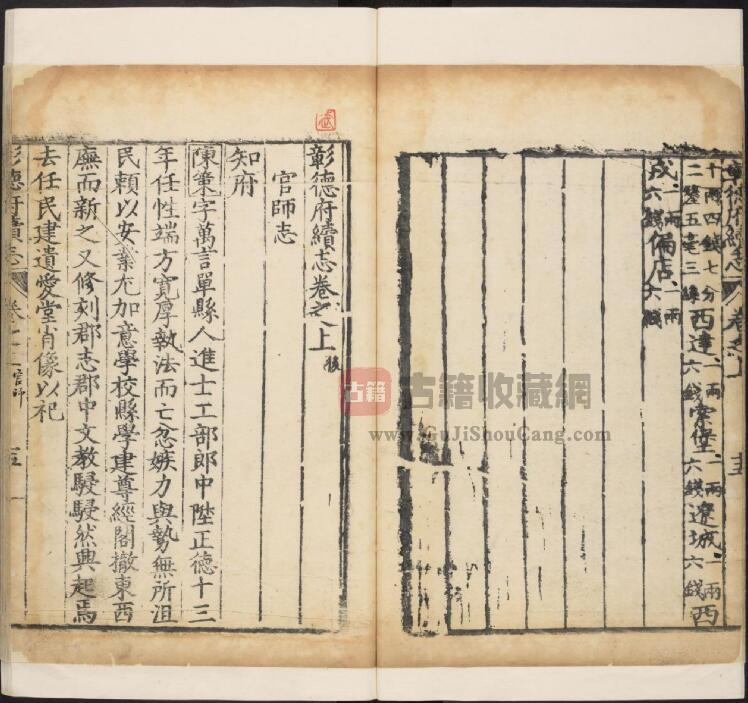 十兩四錢七分
二釐五毫三絲西達一兩六錢寨堡一兩六錢遼城一兩六錢西
戍一兩六錢偏店一兩六錢
彰德府續志卷之上後
官師志
知府
陳策字萬言單縣人進士工部郎中陞正德十三
年任性端方寬厚執法而亡忿嫉力與勢無所沮
民賴以安業尤加意學校縣學建尊經閣撤東西
廡而新之又修刻郡志郡中文教駸駸然興起焉
去任民建遺愛堂肖像以祀
彰德府續志 卷之上 官師
古籍 古籍收藏網
www.GuJiShouCang.com